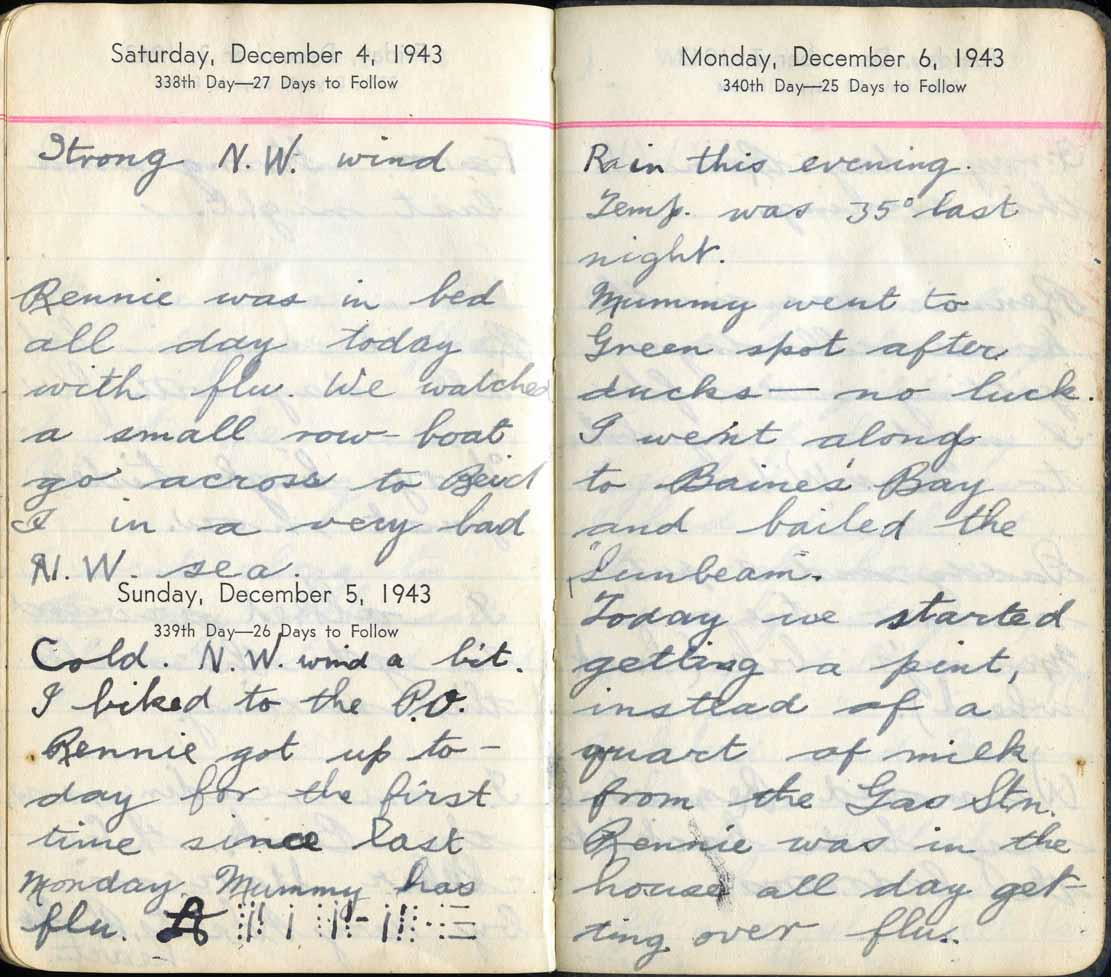 Saturday, December 4, 1943
338th Day—27 Days to Follow
Strong N.W. wind
Rennie was in bed
all day today
with flu. We watched
a small row-boat
go across to Beid
I in a very bad
N.W. sea.
Sunday, December 5, 1943
339th Day—26 Days to Follow
Cold. N.W. wind a bit.
I biked to the P.O.
Rennie got up to-
day for the first
time since last
Monday. Mummy has
flu.
Monday, December 6, 1943
340th Day—25 Days to Follow
Rain this evening.
Temp. was 35° last
night.
Mummy went to
Green spot after
ducks — no luck.
I went along
to Baine's Bay
and bailed the
"Sunbeam.
Today we started
getting a pint,
instead of a
quart of milk
from the Gas Stn.
Rennie was in the
house all day get-
ting over flu.